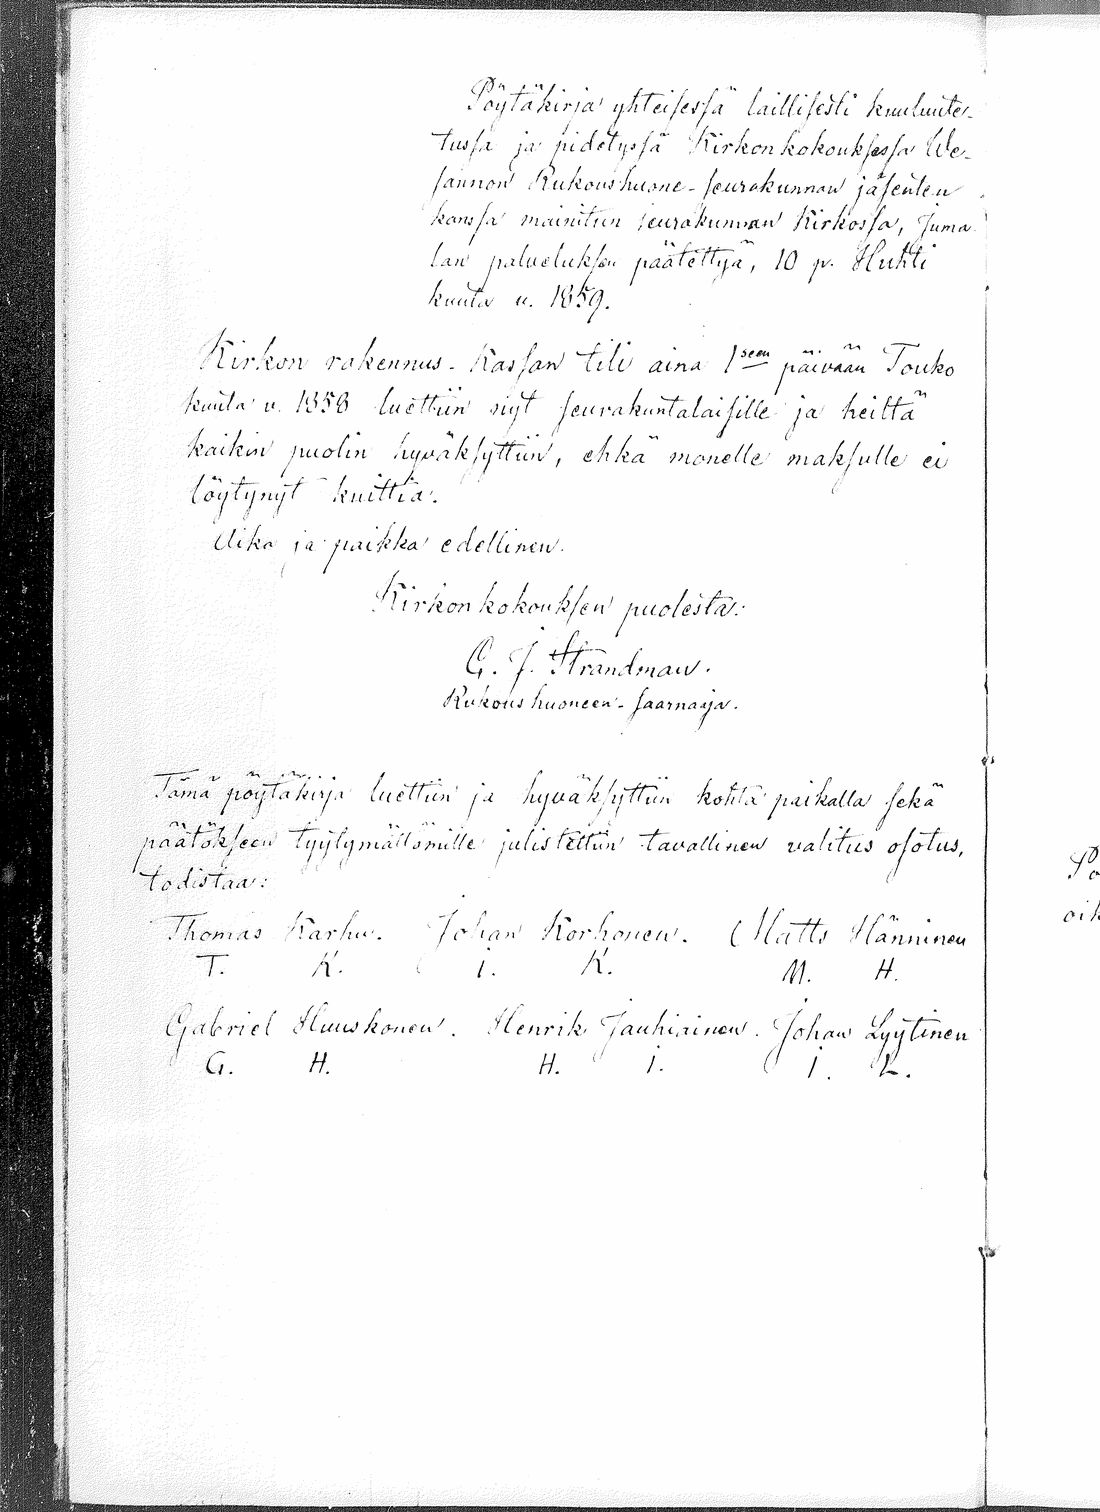 Pöytäkirja yhteisessä laillisesti kuulute-
tussa ja pidetyssä Kirkonkokouksessa We-
sannon Rukoushuone-seurakunnan jäsenten
kanssa mainitun seurakunnan Kirkossa, Juma-
lan palveluksen päätettyä, 10 p. Huhti
kuuta v. 1859.
Kirkon rakennus-Kassan tili aina 1seen päivään Touko
kuuta v. 1858 luettiin nyt seurakuntalaisille ja heiltä
kaikin puolin hyväksyttiin, ehkä monelle maksulle ei
löytynyt kuittia.
Aika ja paikka edellinen.
Kirkonkokouksen puolesta:
G. J. Strandman.
Rukoushuoneen-saarnaaja.
Tämä pöytäkirja luettiin ja hyväksyttiin kohta paikalla sekä
päätökseen tyytymättömille julistettiin tavallinen valitus osotus,
todistaa:
Thomas Karhu. Johan Korhonen. Matts Hänninen
T. K. I. K. M. H.
Gabriel Huuskonen. Henrik Jauhiainen. Johan Lyytinen
G. H. H. I. I. L.
Po
oik